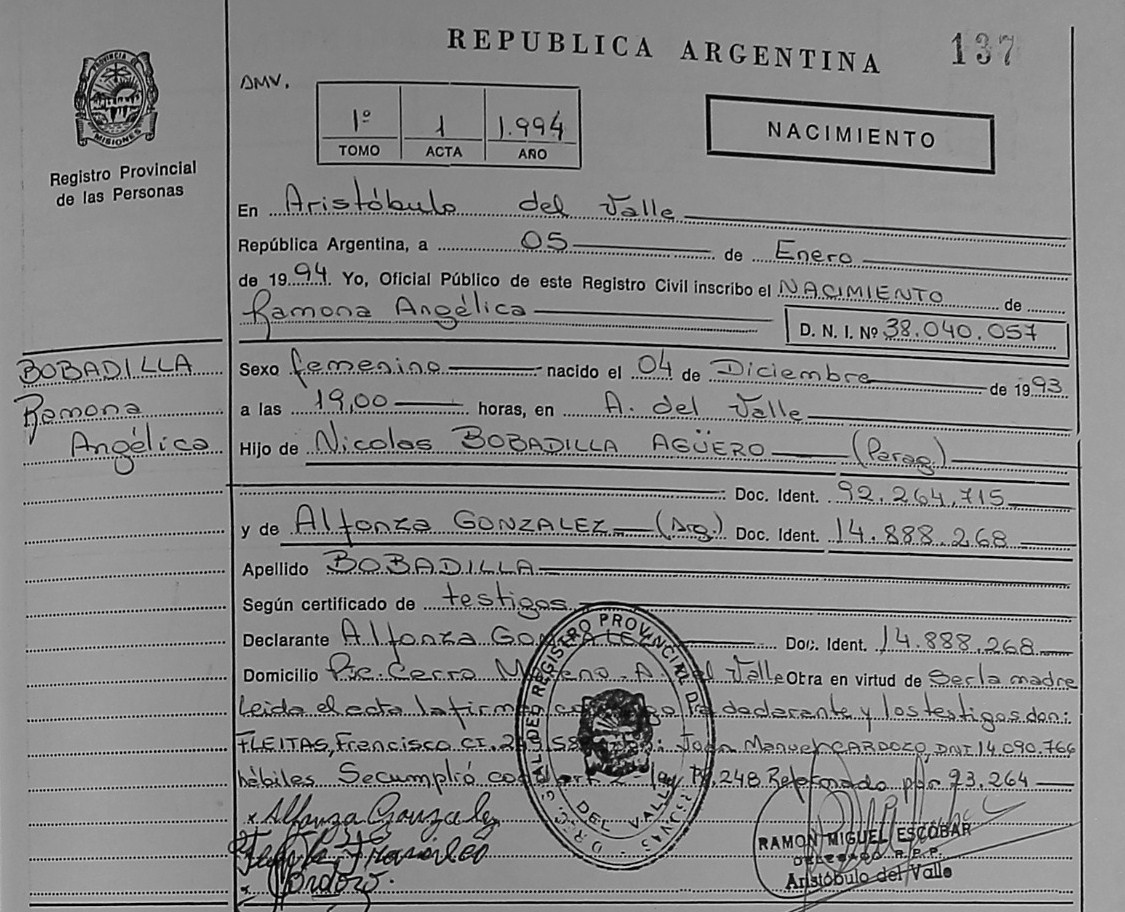 REPUBLICA ARGENTINA 137
PROVINCIA DE MISIONES
Registro Provincial
de las Personas
DMV.
1º 1 1.994
TOMO ACTA AÑO
NACIMIENTO
En Aristóbulo del Valle
República Argentina, a 05 de Enero
de 1994 Yo, Oficial Público de este Registro Civil inscribo el NACIMIENTO de
Ramona Angélica
D. N. I. Nº 38.040.057
BOBADILLA
Ramona
Angélica
Sexo femenino nacido el 04 de Diciembre de 1993
a las 19,00 horas, en A. del Valle
Hijo de Nicolas BOBADILLA AGÜERO (Parag)
Doc. Ident. 92.264.715
y de Alfonza GONZALEZ (Arg.) Doc. Ident. 14.888.268
Apellido BOBADILLA
Según certificado de testigos
Declarante Alfonza GONZALEZ Doc. Ident. 14.888.268
Domicilio Pje. Cerro A. del Valle Obra en virtud de Ser la madre
Leida el acta la firma declarante y los testigos don:
FLEITAS, Francisco CI. Juan Manuel CARDOZO, DNI 14.090.766
hábiles. Se cumplió con 248 Reformado por 93.264
REGISTRO PROVINCIAL DE LAS PERSONAS
DEL VALLE
x Alfonza Gonzalez
RAMON MIGUEL ESCOBAR
DELEGADO R.P.P.
Aristóbulo del Valle